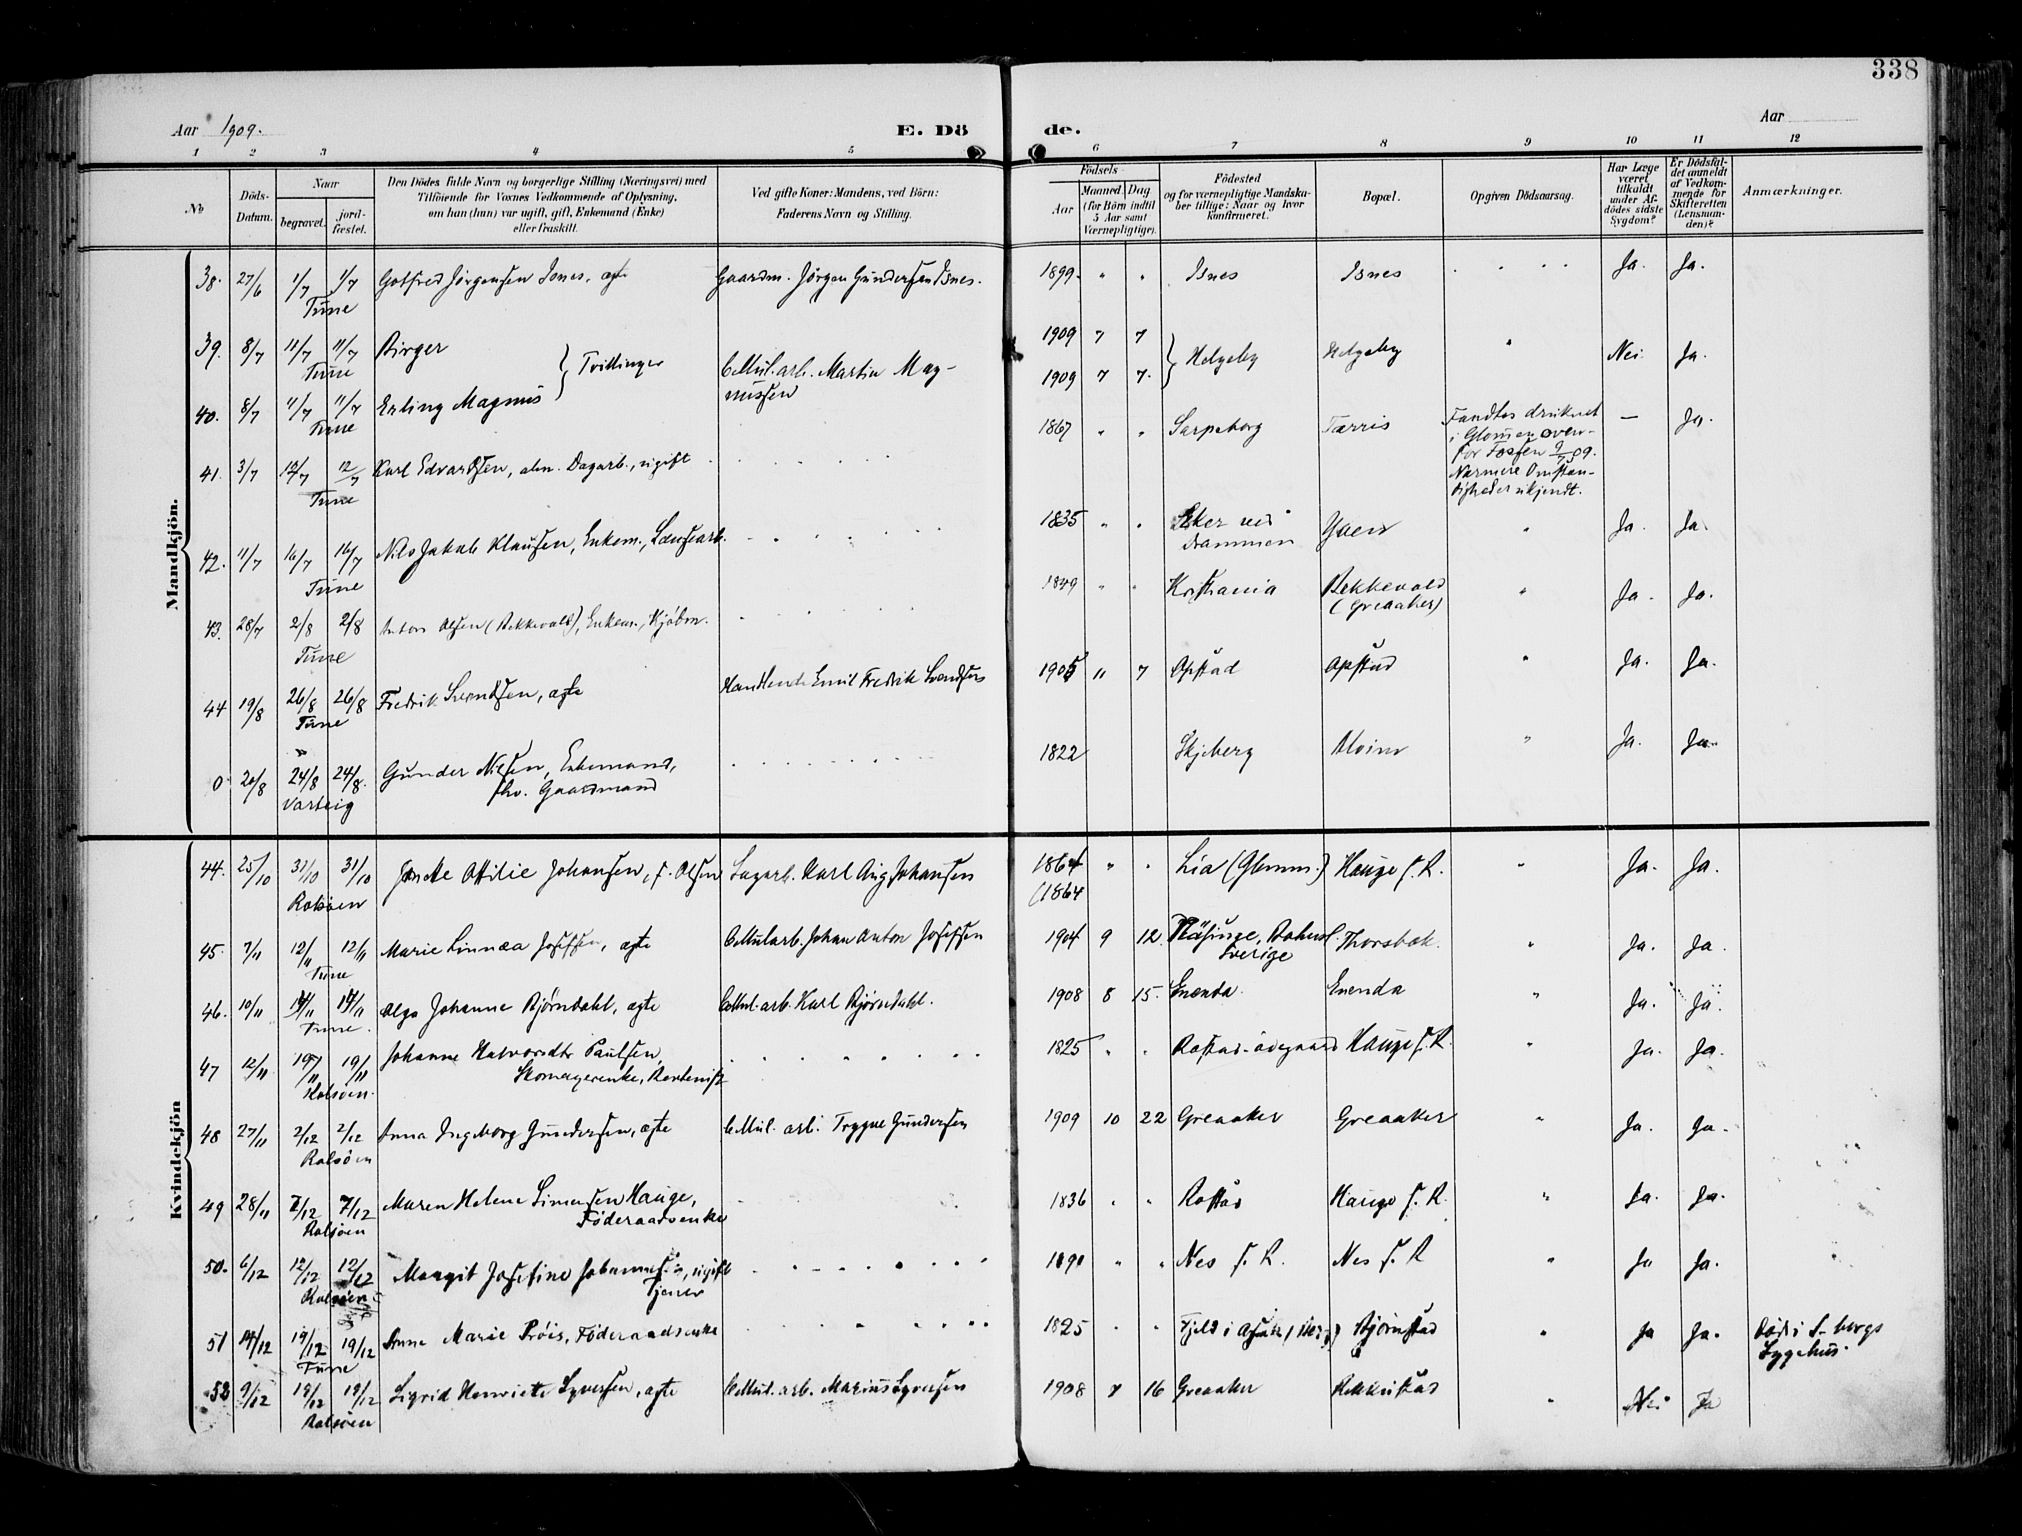 338
Aar 1909.
E. Dö de.
Aar
1 2 3 4 5 6 7 8 9 10 11 12
No
Döds-Datum.
Naar
begravet.
jord-fæstet.
Den Dödes fulde Navn og borgerlige Stilling (Næringsvei) med
Tilföiende for Voxnes Vedkommende af Oplysning,
om han (hun) var ugift, gift, Enkemand (Enke)
eller fraskilt.
Ved gifte Koner: Mandens, ved Börn:
Faderens Navn og Stilling.
Födsels-
Aar
Maaned. Dag
(for Börn indtil
5 Aar samt
Værnepligtige).
Födested
og for værnepligtige Mandska-
ber tillige: Naar og hvor
konfirmeret.
Bopæl.
Opgiven Dödsaarsag.
Har Læge
været
tilkaldt
under Af-
dödes sidste
Sygdom?
Er Dödsfal-
det anmeldt
af Vedkom-
mende for
Skifteretten
(Lensman-
den)?
Anmærkninger.
Mandkjön.
38. 27/6 1/7 1/7 Gotfred Jörgensen Isnes, ægte Gaardm. Jörgen Gundersen Isnes. 1899. " " Isnes Isnes Ja. Ja.
Tune
39. 8/7 11/7 11/7 Birger 1909 7 7 Helgeby Helgeby " Nei. Ja.
Tune
Tvillinger Cellul. arb. Martin Mag-
nussen
40. 8/7 11/7 11/7 Erling Magnus 1909 7 7.
Tune
41. 3/7 12/7 12/7 Karl Edvardsen, alm. Dagarb., ugift 1867 " " Sarpsborg Tærris Fandtes druknet — Ja.
i Glommen oven-
for Fossen 9/7 09.
Nærmere Omstæn-
digheder ukjendt.
Tune
42. 11/7 16/7 16/7 Nils Jakob Klausen, Enkem., Lænsearb. 1835 " " Eker ved
Drammen " Ja. Ja.
Tune
43. 28/7 2/8 2/8 Anton Olsen (Bekkevold), Enkem., Kjøbm. 1849 " " Kristiania Bekkevold
(Greaaker) " Ja. Ja.
Tune
44 19/8 26/8 26/8 Fredrik Svendsen, ægte Handlende Emil Fredrik Svendsen 1905 " 7 Opstad Opstad " Ja. Ja.
Tune
0 20/8 24/8 24/8. Gunder Nilsen, Enkemand,
fhv. Gaardmand 1822 Skjeberg Alvim " Ja. Ja.
Varteig
Kvindekjön
44. 25/10 31/10 31/10 Ottilie Johansen, f. Olsen Sagarb. Karl Aug Johansen 1864 " " Lia (Glemm.) Hauge s. R. " Ja. Ja.
(1864
Rolsöen
45. 7/11 12/11 12/11 Marie Linnæa Josefsen, ægte Cellularb. Johan Anton Josefsen 1904 9 12. Näsinge, Bohusl.
Sverige Thorsbæk. " Ja. Ja.
Tune
46. 10/11 14/11 14/11 Olga Johanne Björndahl, ægte Cellul. arb. Karl Björndahl. 1908 8 15. Enenda. Enenda " Ja. Ja.
Tune.
47 12/11 19/11 19/11 Johanne Halvorsdtr Paulsen,
Skomagerenke, 1825 " " Rostad-ödegaard Hauge s. R. " Ja. Ja.
Rolsöen.
48 27/11 2/12 2/12 Anna Ingeborg Gundersen, ægte Cellul. arb. Trygve Gundersen 1909 10 22 Greaaker Greaaker " Ja. Ja.
Rolsöen
49 28/11 7/12 7/12 Maren Helene Simensen Hauge,
Föderaadsenke 1836 " " Rostad Hauge s. R. " Ja. Ja.
Rolsöen
50. 6/12 12/12 12/12 Margit Josefine Johannes., ugift
Tjener " " Nes s. R. Nes s. R " Ja Ja. "
Rolsöen
51 14/12 19/12 19/12 Anne Marie Pröis, Föderaadsenke 1825 " " Fjeld i Björnstad " Ja Ja. Död i S-borgs
Sygehus.
Tune
52 9/12 19/12 19/12 Sigrid Henriette Syversen, ægte Cellul. arb. Marius Syversen 1908 7 16 Greaaker Bekkustad " Nei Ja
Rolsöen